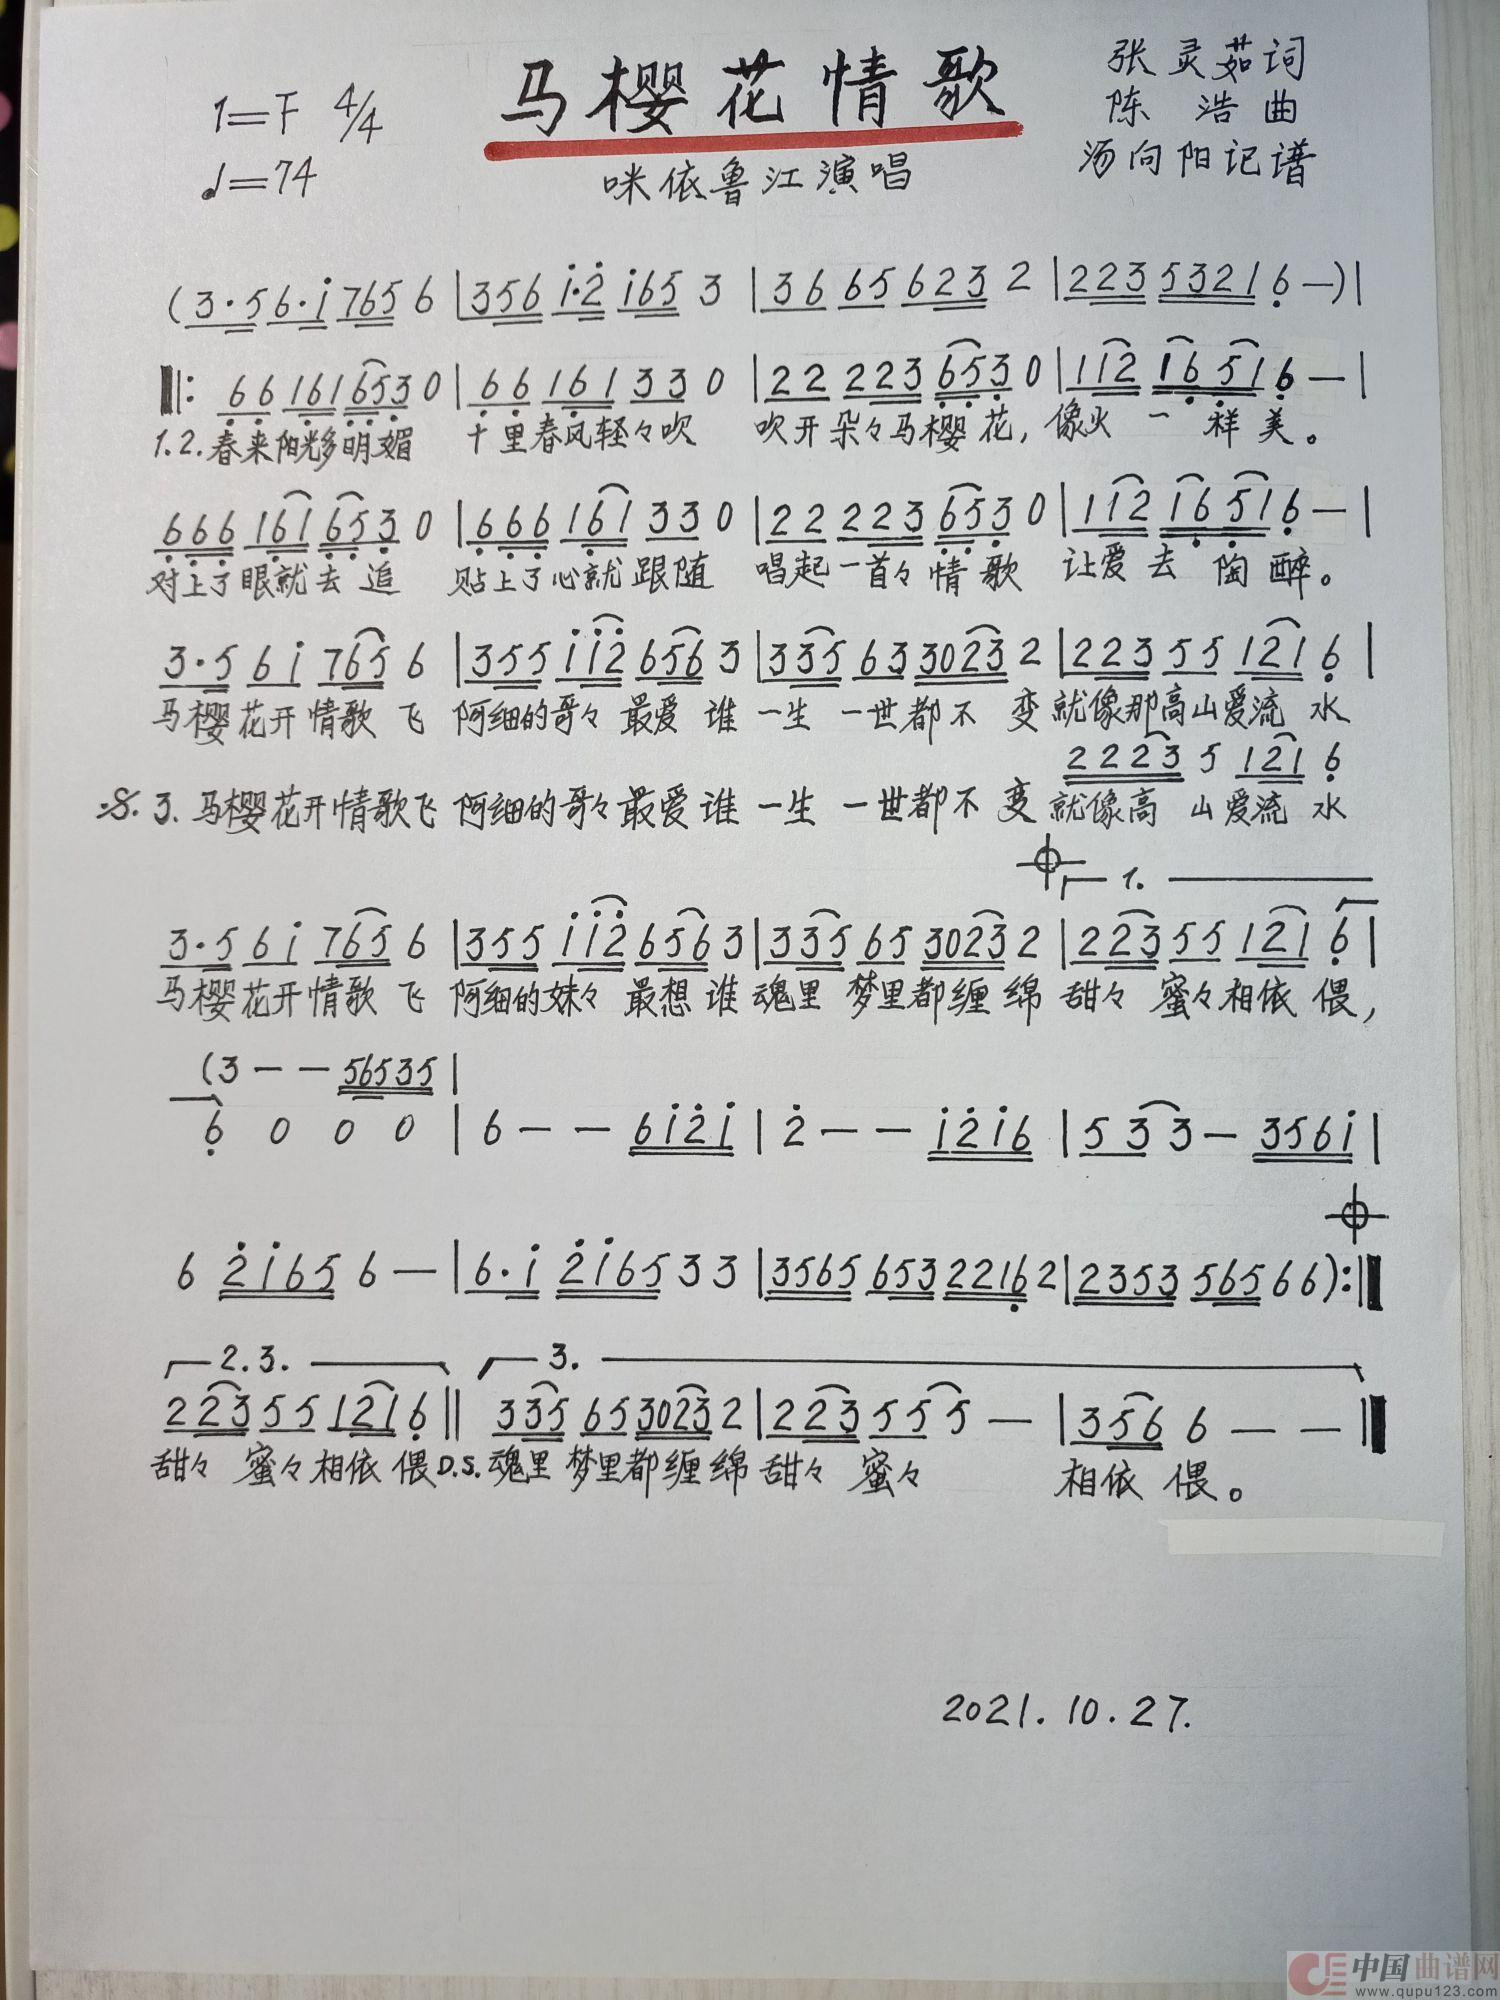 马樱花情歌
1=F 4/4
♩=74
张灵茹词
陈 浩曲
汤向阳记谱
咪依鲁江演唱
(3·5 6·i 765 6 | 356 i·2̇ i65 3 | 36 65 623 2 | 223 5321 6̣ —) |
‖: 6̣6̣ 16̣1 6̣5̣3̣ 0 | 6̣6̣ 16̣1 33 0 | 22 223 6̣5̣3̣ 0 | 112 16̣5̣1 6̣ — |
1.2.春来阳光多明媚 十里春风轻々吹 吹开朵々马樱花,像火一样美。
6̣6̣6̣ 16̣1 6̣5̣3̣ 0 | 6̣6̣6̣ 16̣1 33 0 | 22 223 6̣5̣3̣ 0 | 112 16̣5̣1 6̣ — |
对上了眼就去追 贴上了心就跟随 唱起一首々情歌 让爱去陶醉。
3·5 6i 765 6 | 355 ii2̇ 656 3 | 335 63 3023 2 | 223 55 121 6̣ |
马樱花开情歌飞 阿细的哥々最爱谁 一生一世都不变就像那高山爱流水
2223 5 121 6̣
𝄋 3.马樱花开情歌飞 阿细的哥々最爱谁 一生一世都不变就像高山爱流水
1.
3·5 6i 765 6 | 355 ii2̇ 656 3 | 335 65 3023 2 | 223 55 121 6̣ |
马樱花开情歌飞 阿细的妹々最想谁魂里梦里都缠绵 甜々蜜々相依偎,
(3 — — 56535 |
6̣ 0 0 0 | 6 — — 6i2̇i | 2̇ — — i2̇i6 | 5 3 3 — 356i |
6 2̇i65 6 — | 6·i 2̇i65 33 | 3565 653 2216̣ 2 | 2353 565 66) :‖
2.3. 3.
223 55 121 6̣ ‖ 335 65 3023 2 | 223 55 5 — | 356 6 — — ‖
甜々蜜々相依偎D.S.魂里梦里都缠绵甜々蜜々 相依偎。
2021.10.27.
中国曲谱网
www.qupu123.com